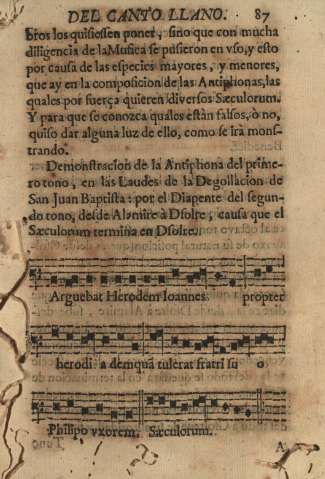 DEL CANTO LLANO. 87
bros los quisiessen poner, sino que con mucha
diligencia de la Musica se pusieron en vso, y esto
por causa de las especies mayores, y menores,
que ay en la composicion de las Antiphonas, las
quales por fuerça quieren diversos Sæculorum.
Y para que se conozca quales estàn falsos, ò no,
quiso dar alguna luz de ello, como se irà mons-
trando.
Demonstracion de la Antiphona del prime-
ro tono, en las Laudes de la Degollacion de
San Juan Baptista: por el Diapente del segun-
do tono, desde Alamire à Dsolre, causa que el
Sæculorum termina en Dsolre.
Arguebat Herodem Ioannes. propter
herodi a demquã tulerat fratri su o
Philipo vxorem. Sæculorum.
A